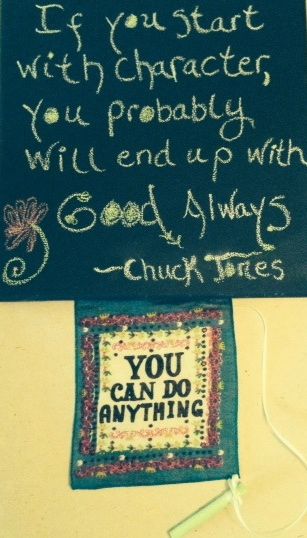 If you start
with character,
you probably
will end up with
Good Always
~Chuck Jones
YOU
CAN DO
ANYTHING